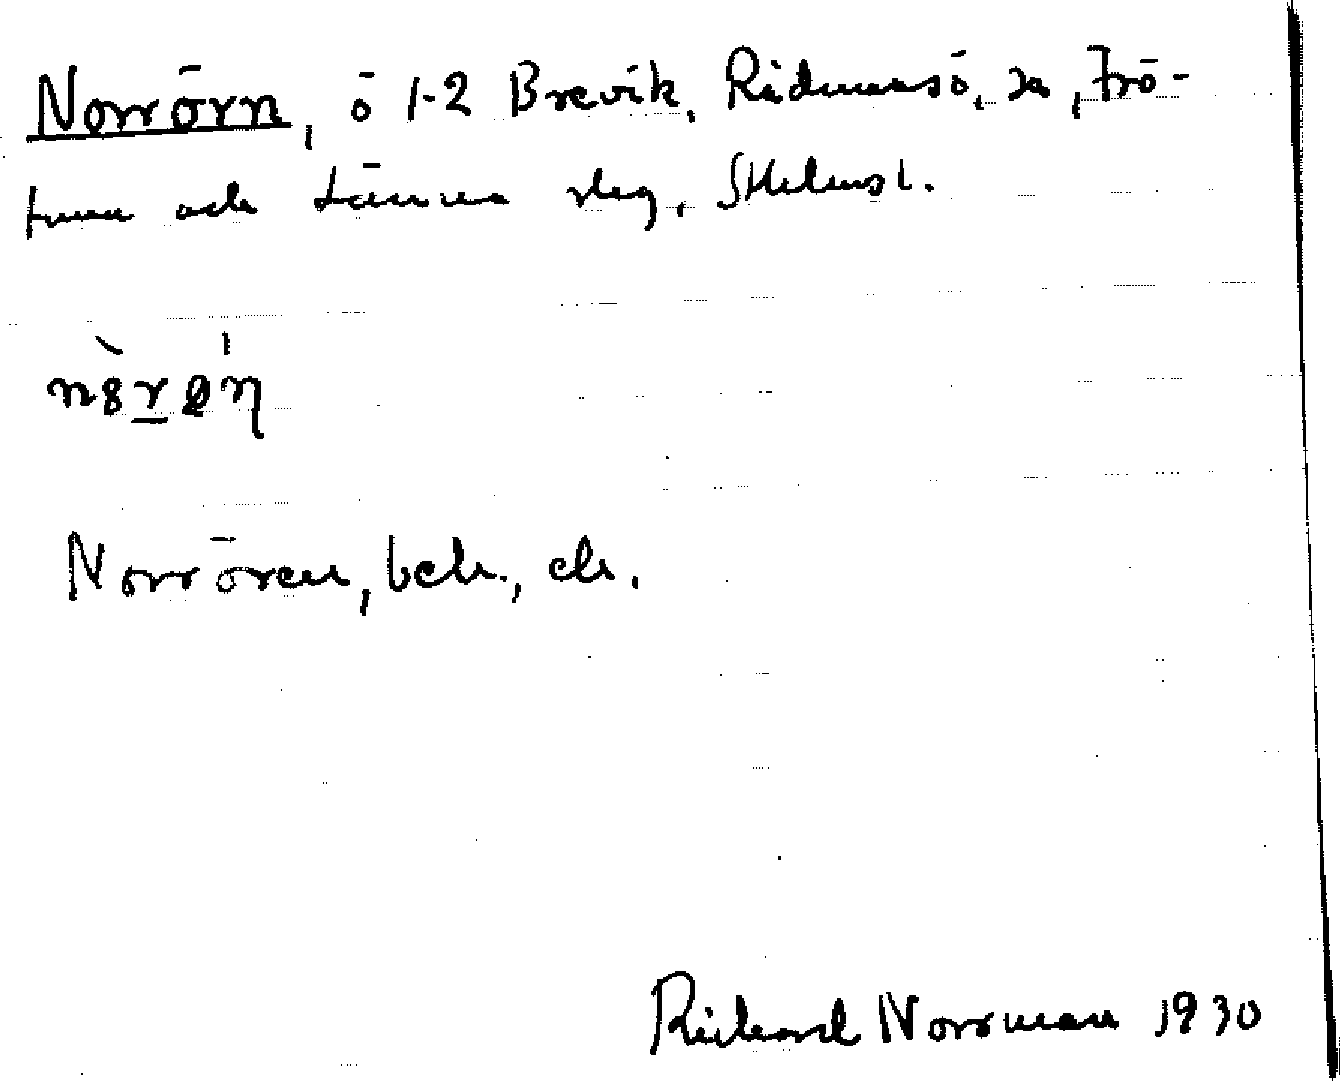 Norrörn, ö 1-2 Brevik, Rådmansö, sn, Frö-
tuna och Länna slag, Sthlms l.
Norrören, beb., ek.
Richard Norrman 1930